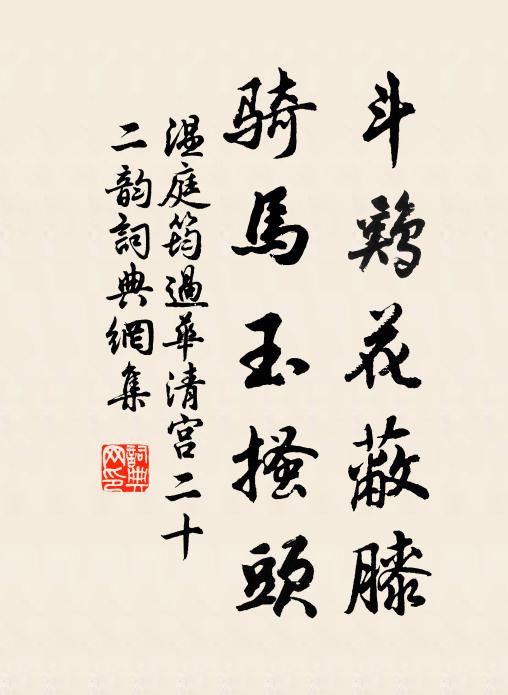 斗鷄花蔽膝
騎馬玉搔頭
温庭筠過華清宫二十
二韵詞典網集
詞典
网印